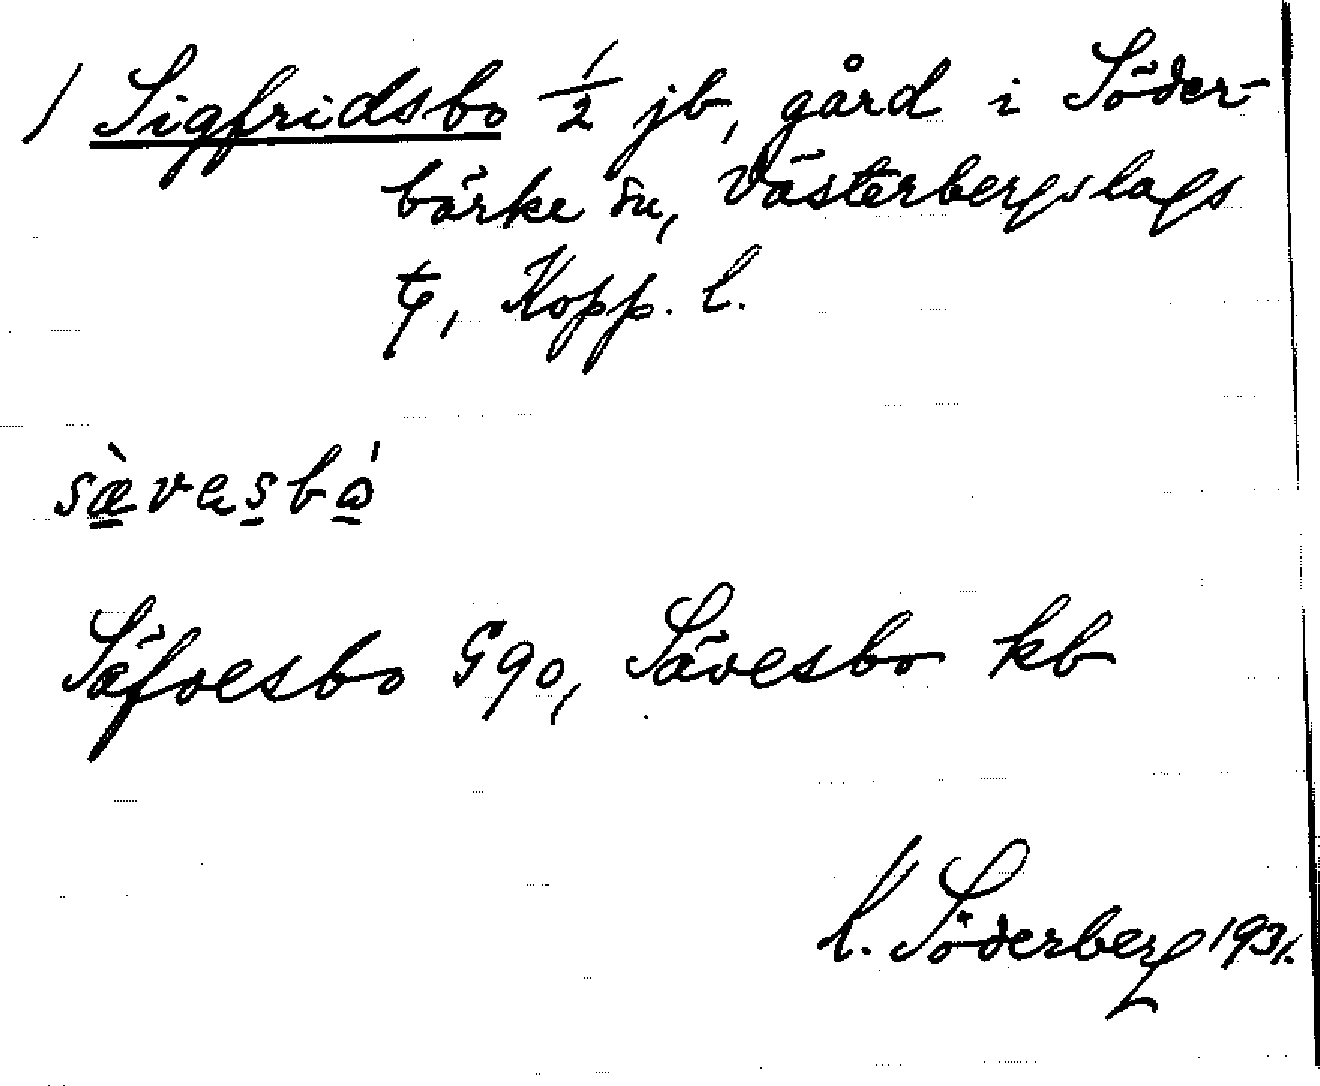 / Sigfridsbo 1/2 jb, gård i Söder-
bärke sn, Västerbergslags
tg, Kopp. l.
sæ̀vasbó
Säfvesbo G 90, Sävesbo kb
Söderberg 1931.